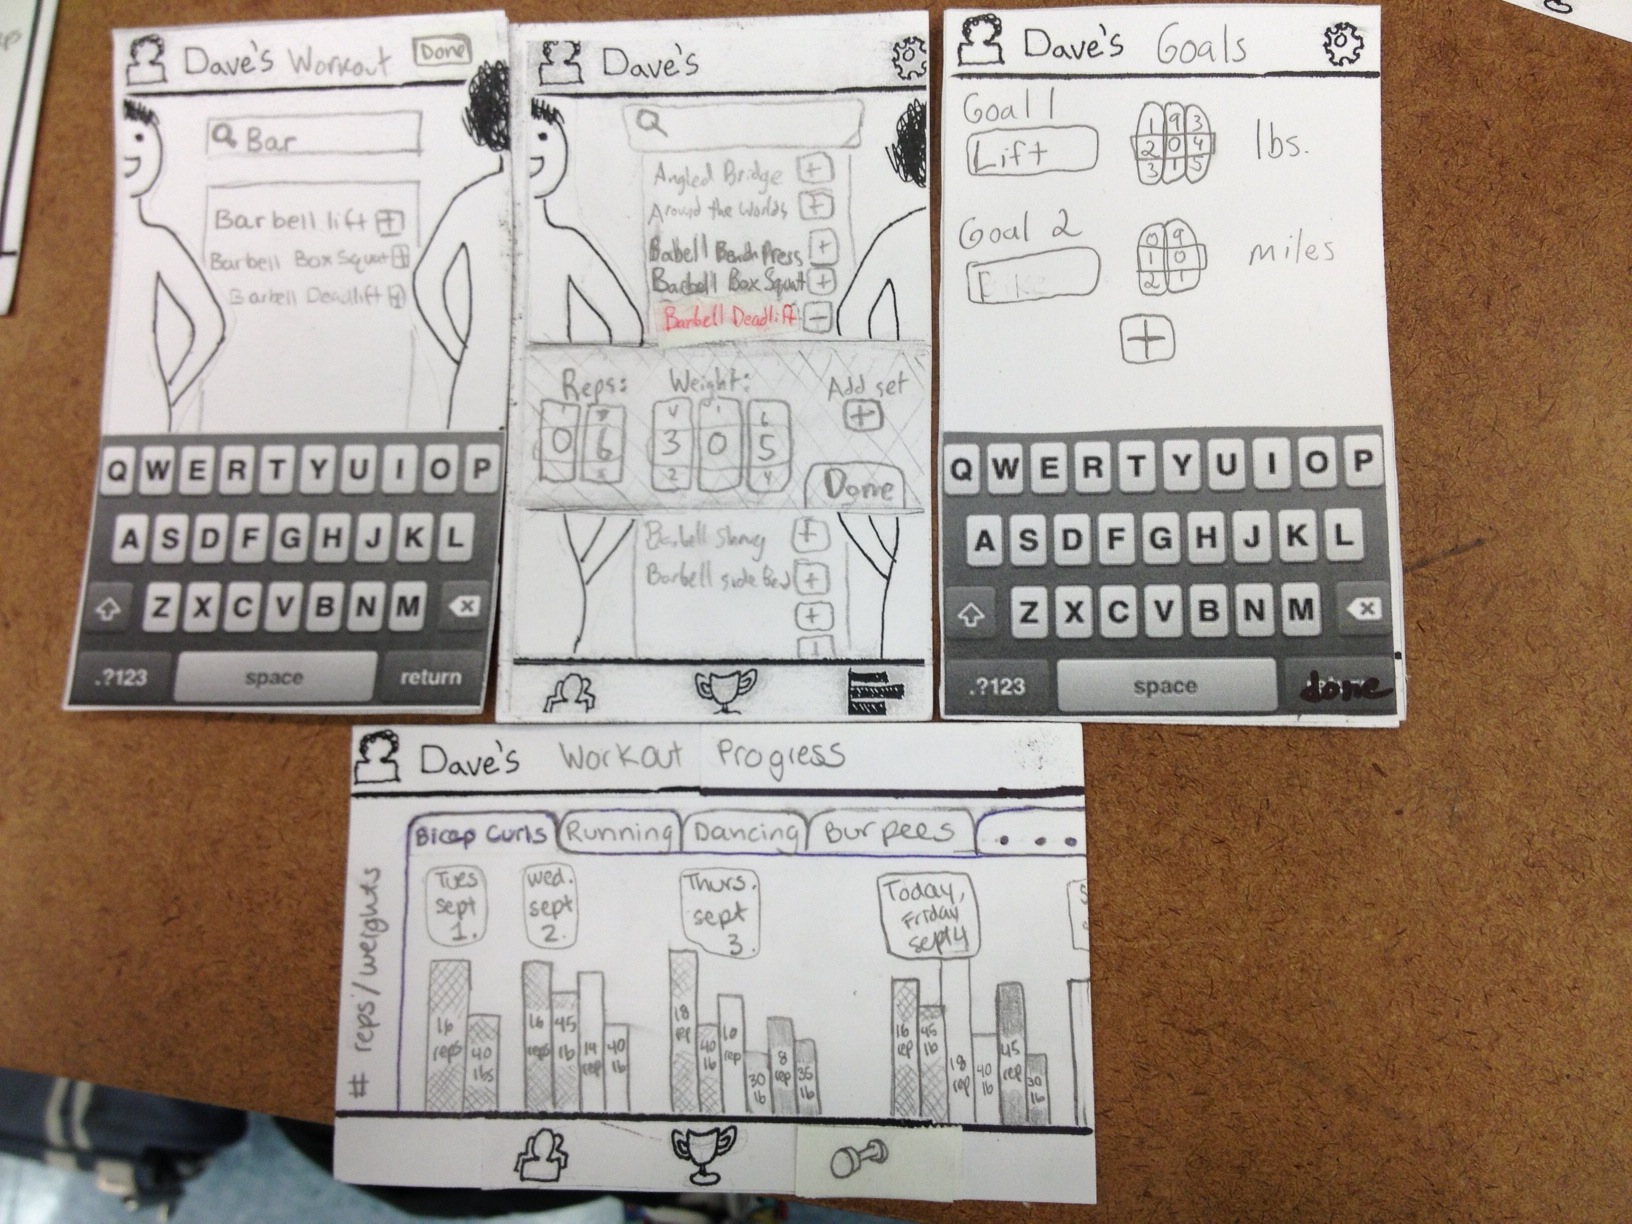 Dave's Workout Done
Bar
Barbell lift +
Barbell Box Squat +
Barbell Deadlift +
Q W E R T Y U I O P
A S D F G H J K L
Z X C V B N M
.?123 space return
Dave's
Angled Bridge +
Around the Worlds +
Babell Bench Press +
Barbell Box Squat +
Barbell Deadlift −
Reps: Weight: Add set
0 6 3 0 5 +
Done
Barbell +
Barbell side Bend +
+
Dave's Goals
Goal 1
Lift
1 9 3
2 0 4
3 1 5
lbs.
Goal 2
0 9
1 0
2 1
miles
+
Q W E R T Y U I O P
A S D F G H J K L
Z X C V B N M
.?123 space done
Dave's Workout Progress
Bicep Curls Running Dancing Burpees ...
# reps/weights
Tues
sept
1.
16
reps
40
lbs
Wed.
sept
2.
16
reps
45
lb
14
rep
40
lb
Thurs.
sept
3.
18
rep
40
lb
10
rep
30
lb
8
rep
35
lb
Today,
Friday
sept 4
16
rep
45
lb
18
rep
40
lb
45
rep
30
lb